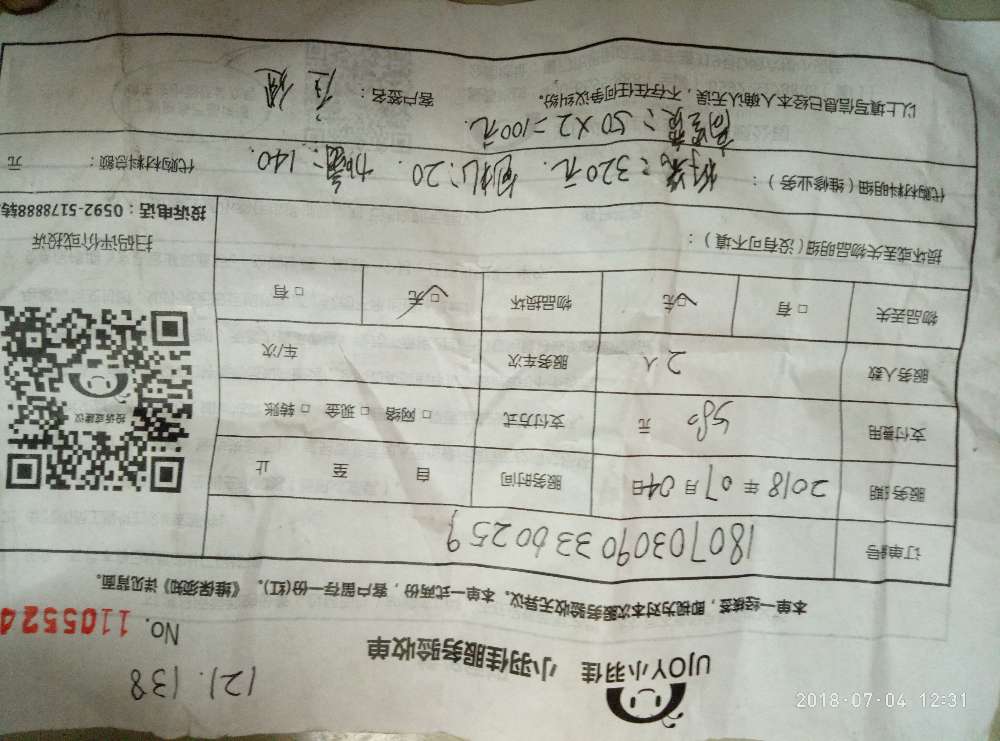 UJOY小羽佳 小羽佳服务验收单
121.138
No. 1105524
本单一经续签，即视为对本次服务验收无异议。本单一式两份，客户留存一份(红)。《维保须知》详见背面。
订单号 1807030903300259
服务期 2018年07月04日 服务时间 自 至 止
支付费用 580 元 支付方式 □网络 □现金 □转账
服务人数 2人 服务车次 车/次
物品丢失 □有 □无 物品损坏 □无 □有
损坏或丢失物品明细（没有可不填）：
投诉或建议
扫码评价或投诉
投诉电话：0592-5178888转
代购材料明细（维修业务）： 320元. 20. 140. 代购材料总额： 元
50×2=100元.
以上填写信息已经本人确认无误，不存在任何争议纠纷。 客户签名：
2018-07-04 12:31